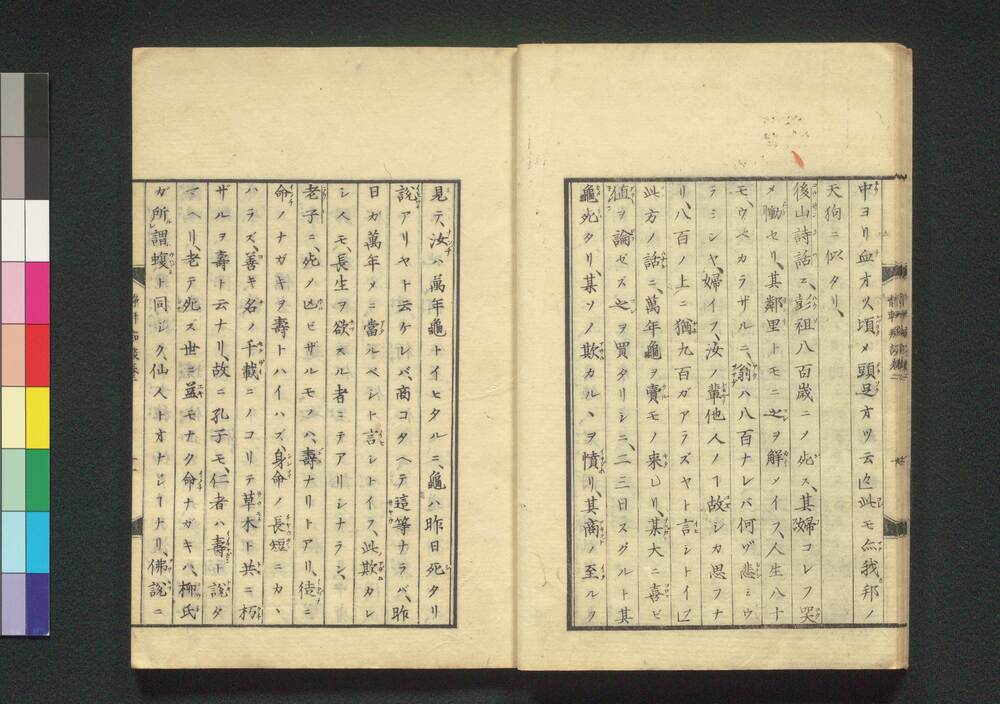 中ヨリ血オスル頃メ頭足オツ云々此モ亦我邦ノ
天狗ニ似タリ、
後山詩話ニ、彭祖八百歳ニノ死ス、其婦コレヲ哭
メ慟セリ、其鄰里トモニ之ヲ解ノイフ、人生八十
モ、ウベカラザルニ、翁ハ八百ナレバ何ゾ悲ミウ
ラミシヤ、婦イフ、汝ノ輩他人ノ故シカ思フナ
リ、八百ノ上ニ猶九百ガアラズヤト言シトイヘ
此方ノ話ニ、萬年龜ヲ賣モノ来レリ、某大ニ喜ビ
値ヲ論ゼズ之ヲ買タリシニ、二三日スグルト其
龜死タリ、某ソノ欺カルヽヲ憤リ、其商ノ至ルヲ
見テ、汝ハ萬年龜トイヒタルニ、龜ハ昨日死タリ
説アリヤト云ケレバ、商コタヘテ這等ナラバ、昨
日ガ萬年メニ當ルベシト言シトイフ、此欺カレ
シ人モ、長生ヲ欲スル者ニテアリシナラン、
老子ニ、死ノ亡ビザルモノハ、壽ナリトアリ、徒ニ
命ノナガキヲ壽トハイハズ、身命ノ長短ニカヽ
ハラズ、善キ名ノ千載ニノコリテ草木ト共ニ朽
ザルヲ壽ト云ナリ、故ニ孔子モ、仁者ハ壽ト説タ
マヘリ、老テ死ズ世ニ益モナク命ナガキハ、柳氏
ガ所謂蝮ト同シク、仙人トオナジナリ、佛説ニ